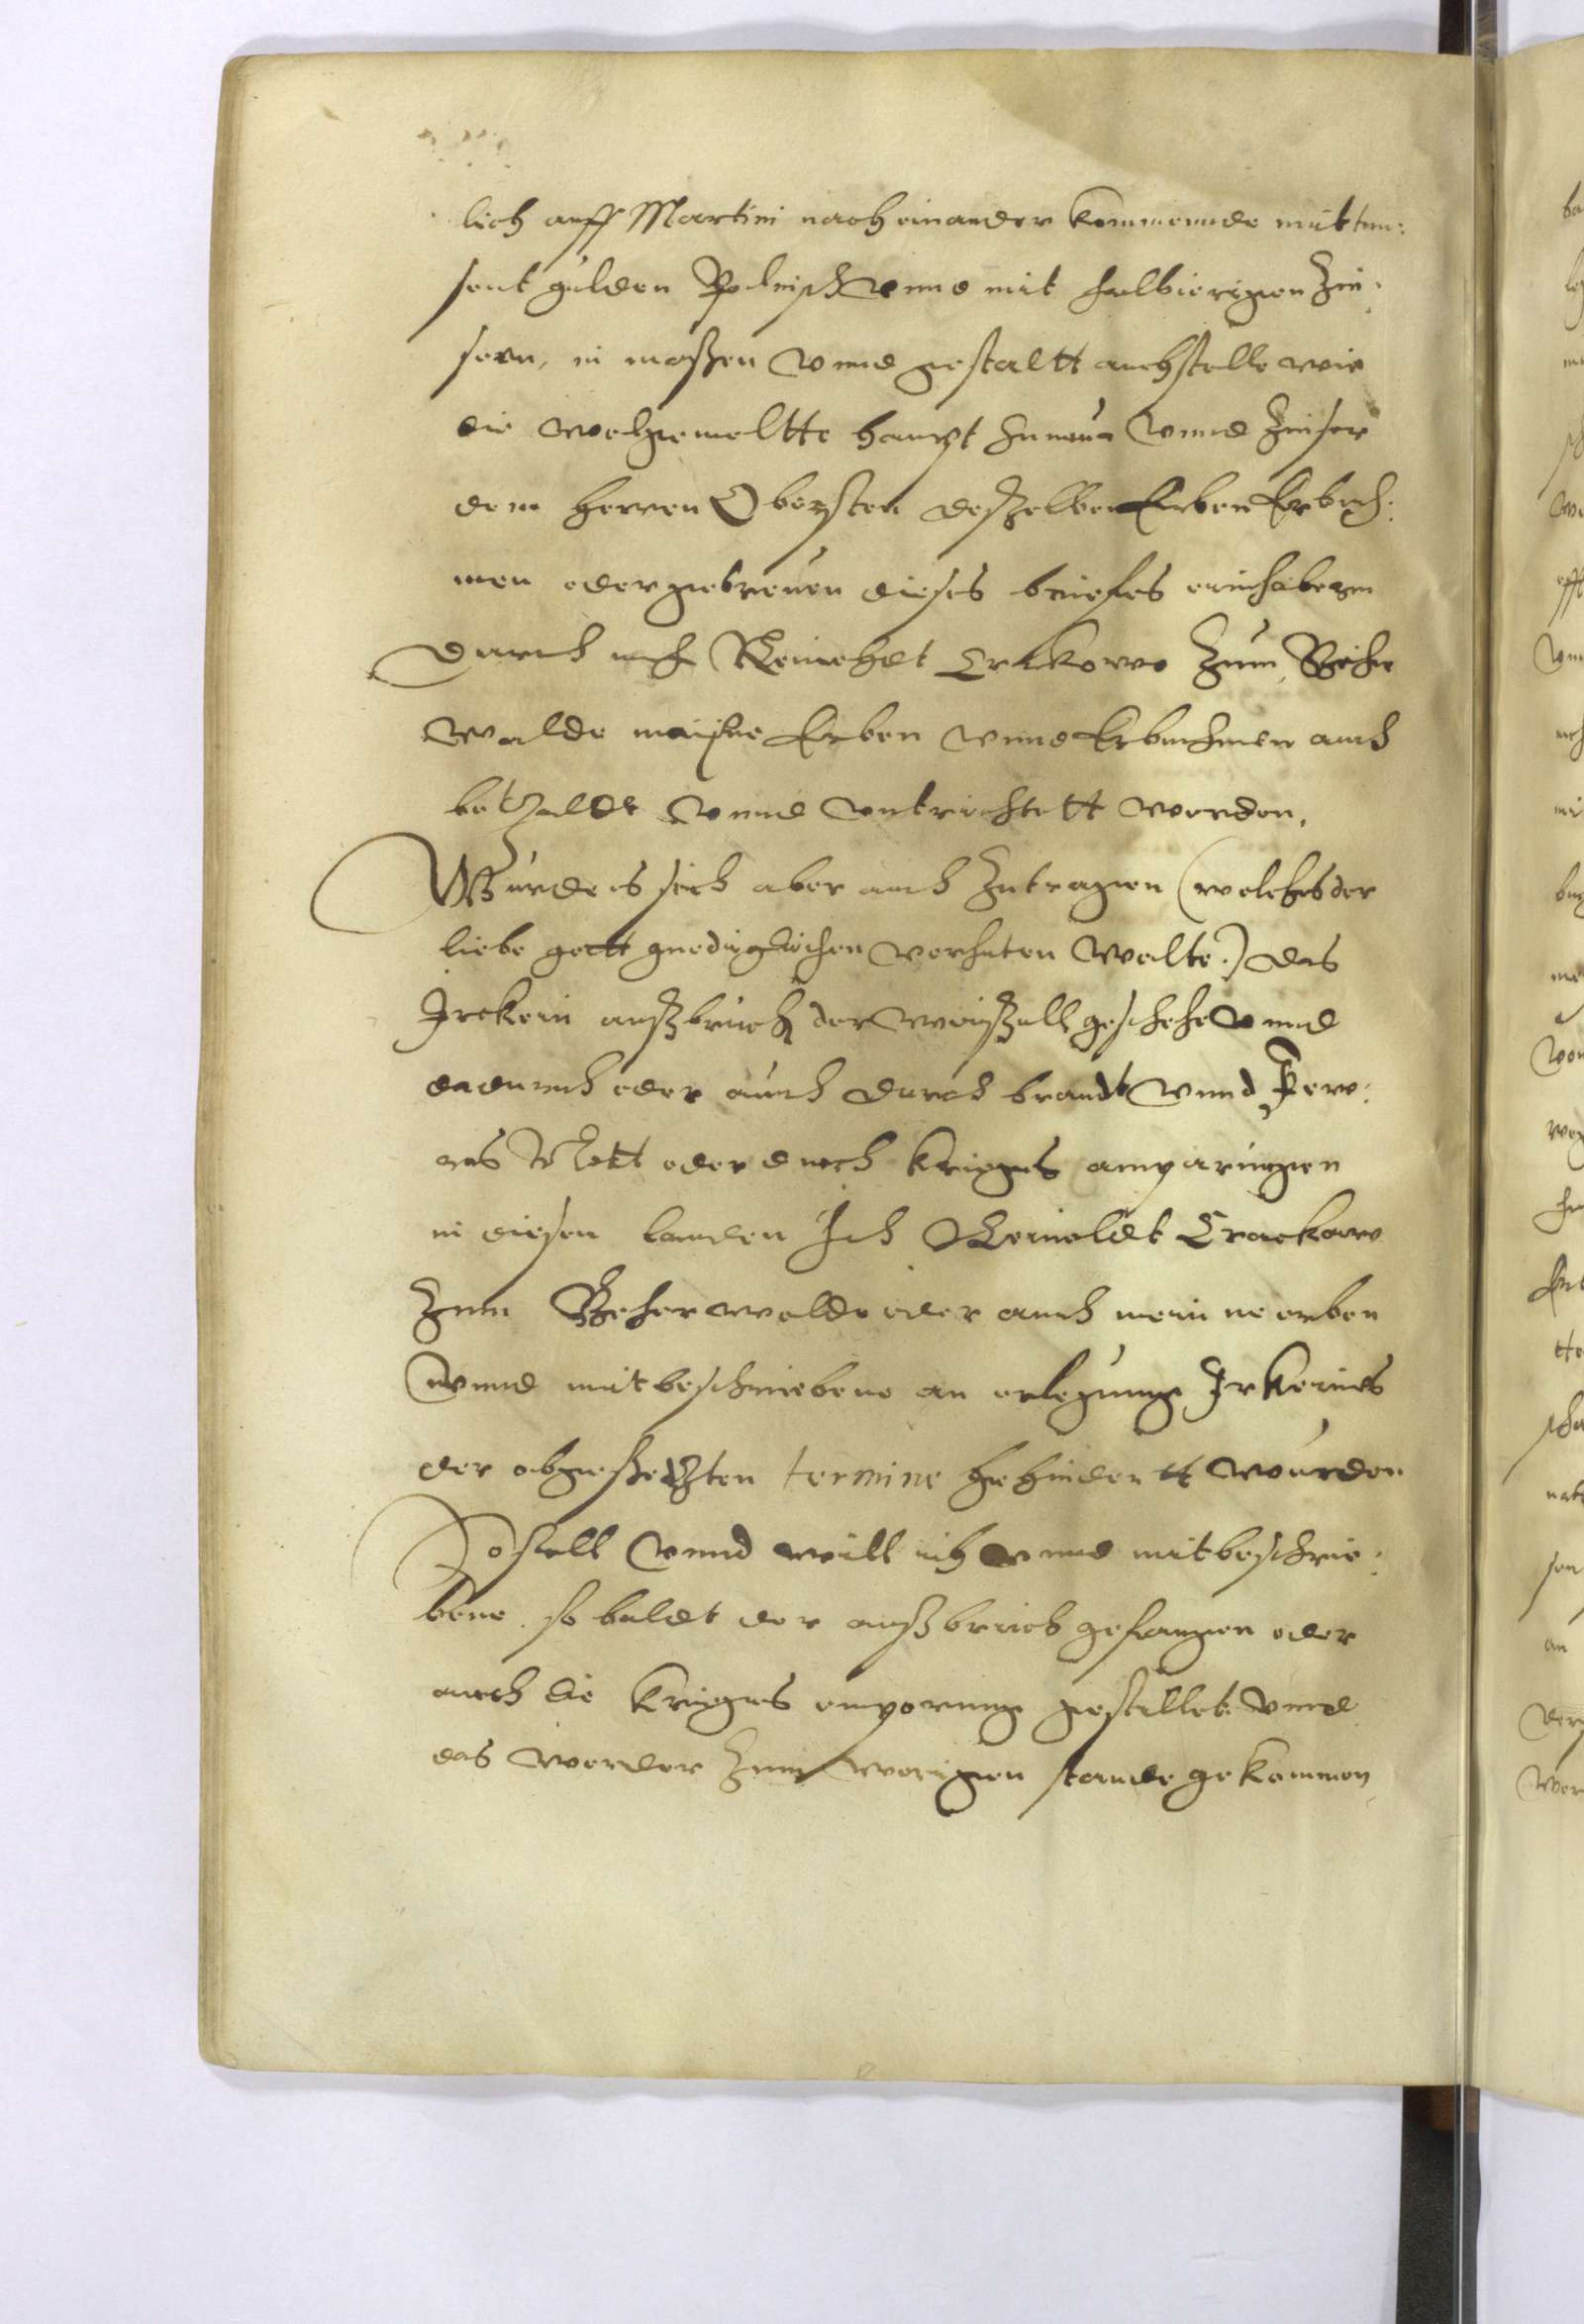 lich auff Martini nach einander kommennde mit tau:
sent gulden Polnisch vnnd mit halbierigen Zin:
sern, in maßen vnnd gestaltt auch stelle wie
die wolgemeltte haupt Summa vnnd Zinser
dem herren Obersten deßelben Erben Erbneh:
men oder getreuen dieses briefes einhabern
durch mich Reinholdt Crakow Zum
walde meine Erben vnnd Erbnehmen auch
betzaldt vnnd entrichtett werden.
Wurde es sich aber auch Zutragen (welches der
liebe gott gnediglichen verhuten wolte.) das
Irckein außbruch der Weißell geschehe vnnd
dadurch oder auch durch brandt vnnd Few:
ers Nott oder durch krieges emparungen
in diesen landen Ich Reinoldt Crackow
Zum walde oder auch meine erben
vnnd mitbeschriebene an erlegunge Irkeines
der obgesetzten termine gehindertt wurden
So soll vnnd will ich vnnd mitbeschrie:
bene so baldt der außbruch gefangen oder
auch die krieges emporung gestillet vnnd
das werder Zum vorigen stande gekommen